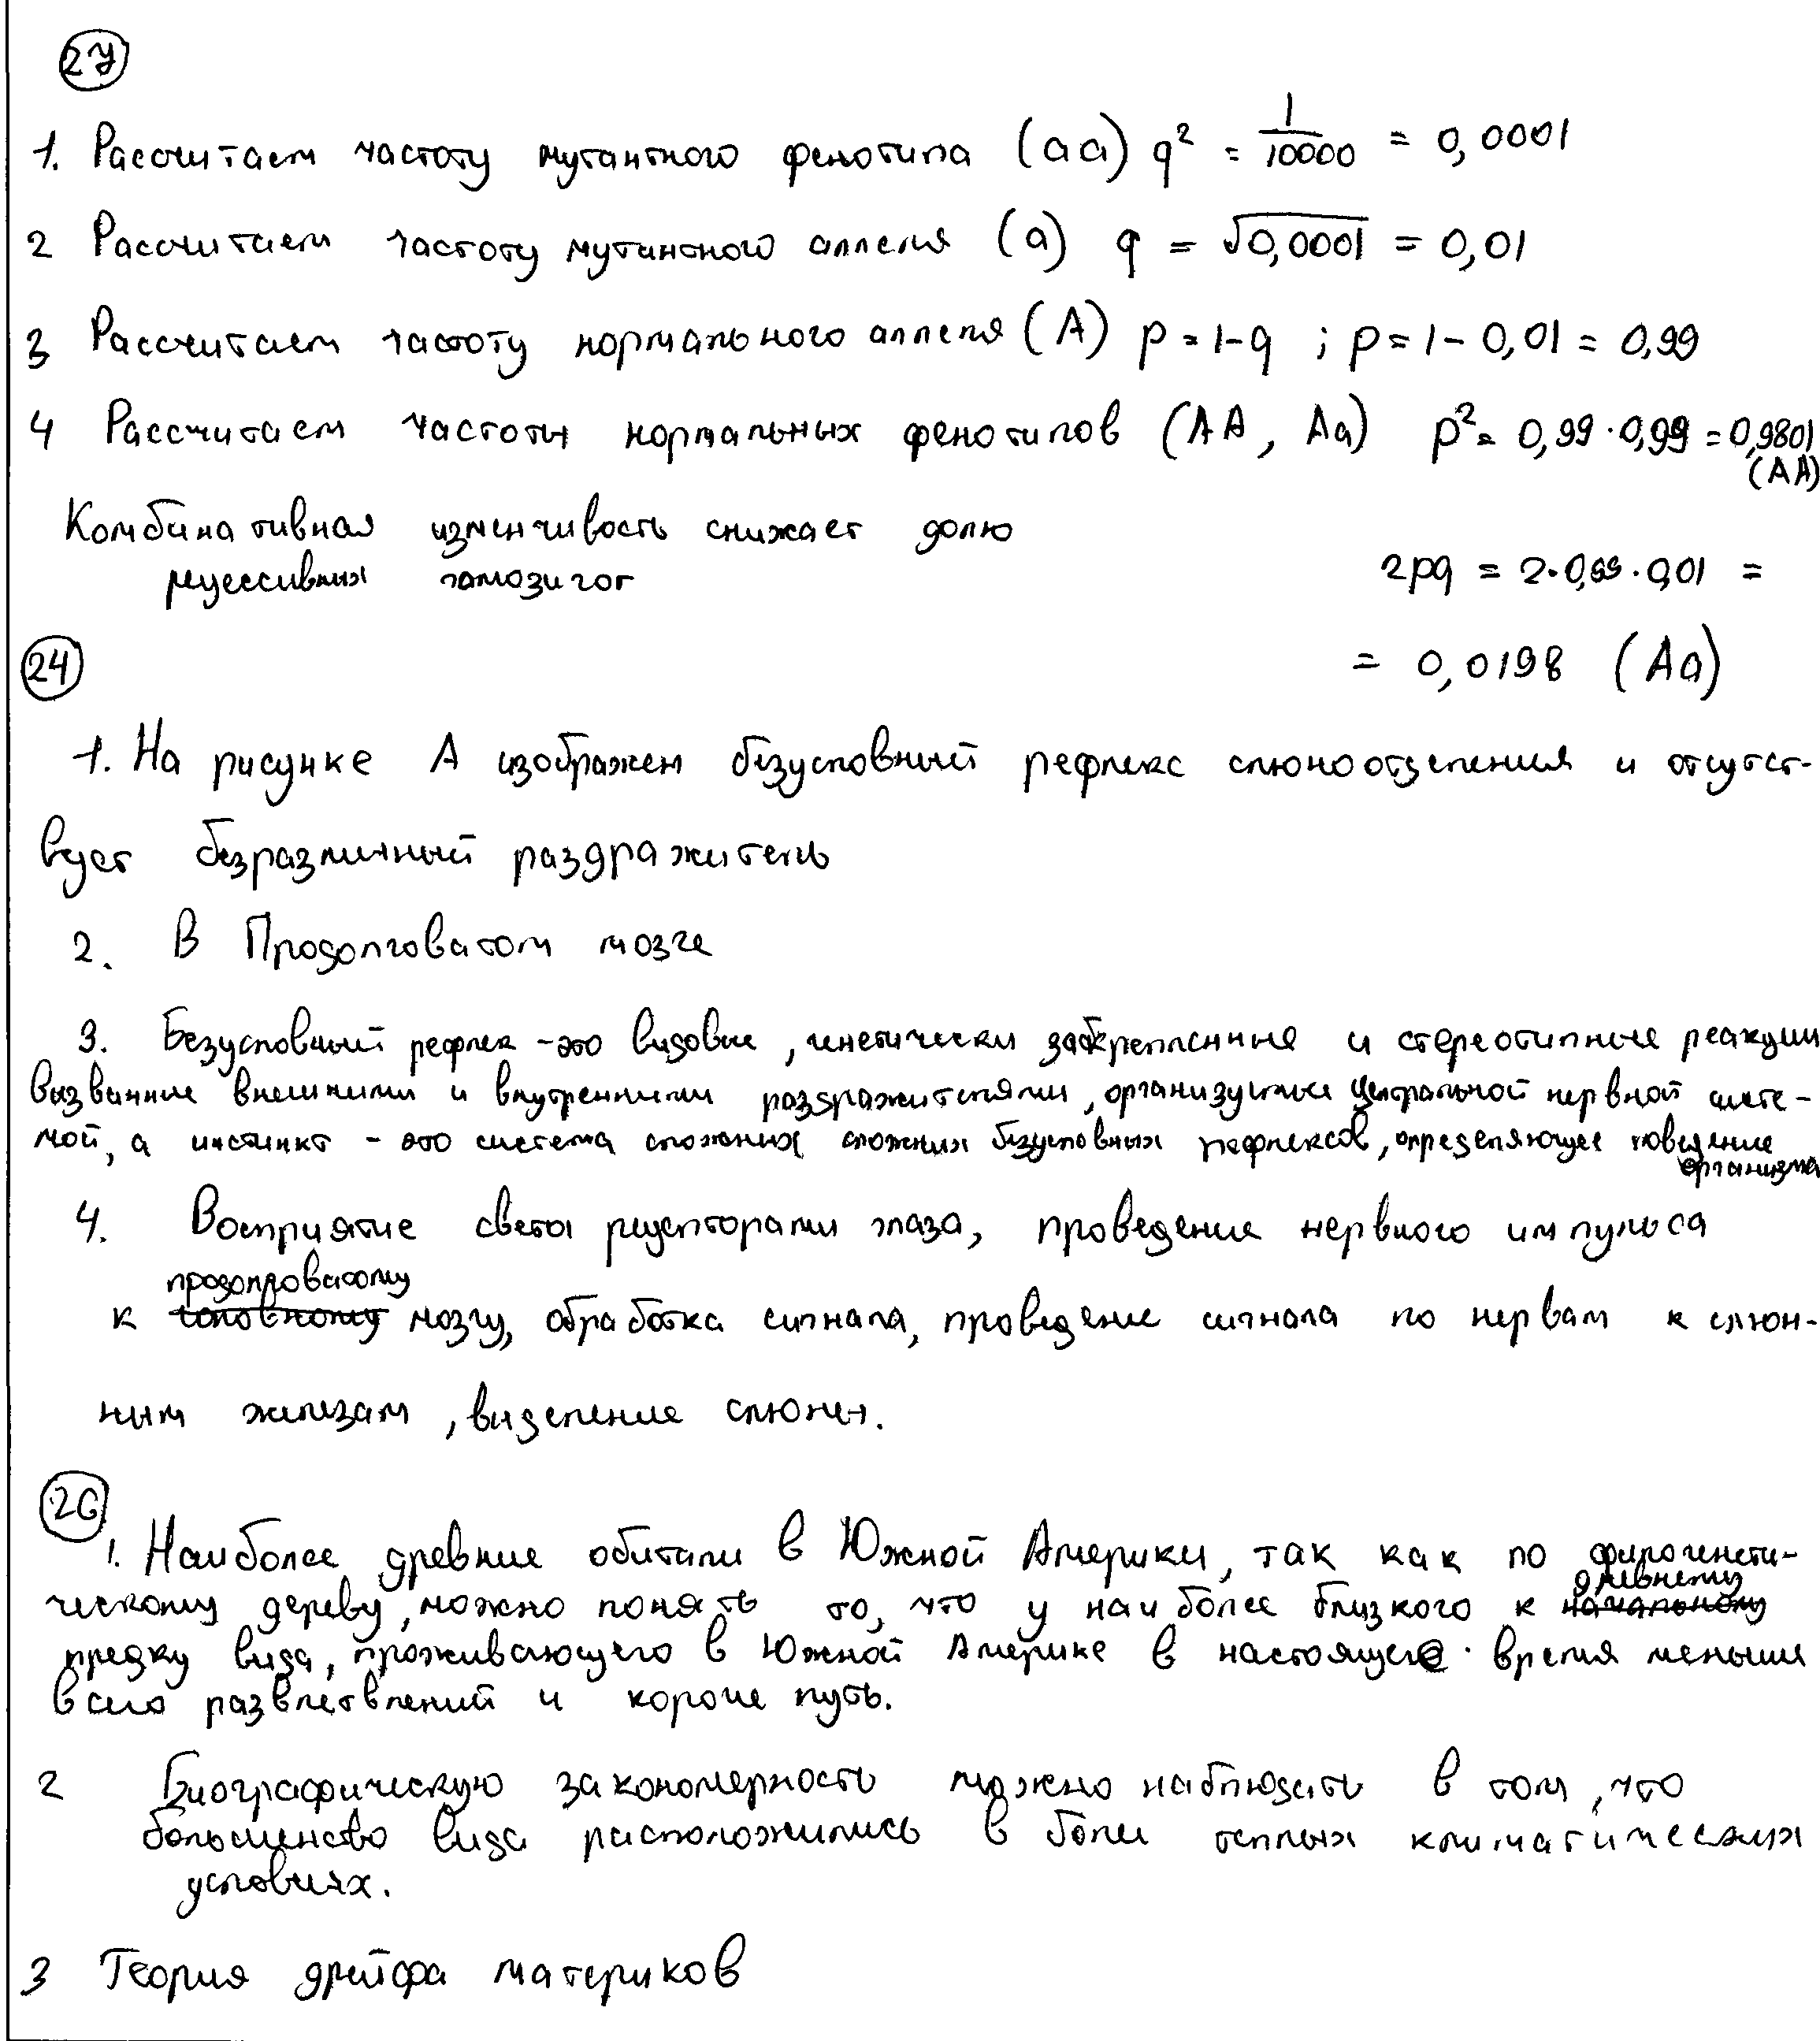 27
1. Рассчитаем частоту мутантного фенотипа (aa) q² = 1/10000 = 0,0001
2 Рассчитаем частоту мутантного аллеля (a) q = √0,0001 = 0,01
3 Рассчитаем частоту нормального аллеля (A) p = 1-q ; p = 1 - 0,01 = 0,99
4 Рассчитаем частоты нормальных фенотипов (AA, Aa) p² = 0,99 · 0,99 = 0,9801
(AA)
Комбинативная изменчивость снижает долю
рецессивных гомозигот
2pq = 2·0,99·0,01 =
= 0,0198 (Aa)
24
1. На рисунке А изображен безусловный рефлекс слюноотделения и отсутст-
вует безразличный раздражитель
2. В Продолговатом мозге
3. Безусловный рефлек - это видовые, генетически закрепленные и стереотипные реакции
вызванные внешними и внутренними раздражителями, организуемые центральной нервной систе-
мой, а инстинкт - это система сложных сложных безусловных рефлексов, определяющее поведение
организма
4. Восприятие света рецепторами глаза, проведение нервного импульса
продолговатому
к головному мозгу, обработка сигнала, проведение сигнала по нервам к слюн-
ным железам, выделение слюны.
26
1. Наиболее древние обитали в Южной Америки, так как по филогенети-
древнему
ческому дереву, можно понять то, что у наиболее близкого к начальному
предку вида, проживающего в Южной Америке в настоящее время меньше
всего разветвлений и короче путь.
2 Биографическую закономерность можно наблюдать в том, что
большенство вида расположились в более теплых климатических
условиях.
3 Теория дрейфа материков